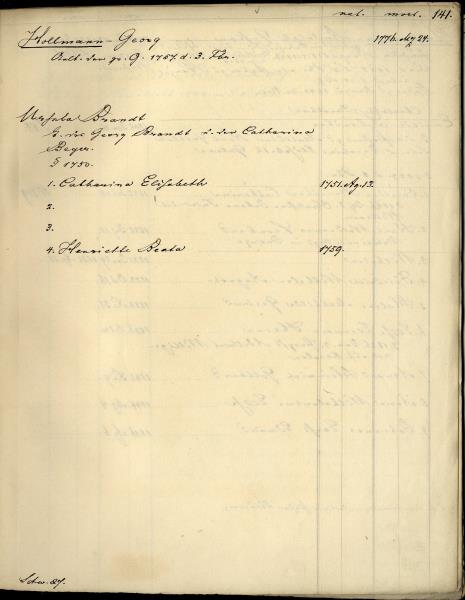 nat. mort. 141.
Hollmann Georg 1776. May 24.
Aelt. der gr. G. 1757. d. 3. Fbr.
Ursula Brandt
T. des Georg Brandt u. der Catharina
Beyer.
§ 1750.
1. Catharina Elisabeth 1751. Ag. 13.
2.
3.
4. Henriette Beata 1759.
Schw. 27.